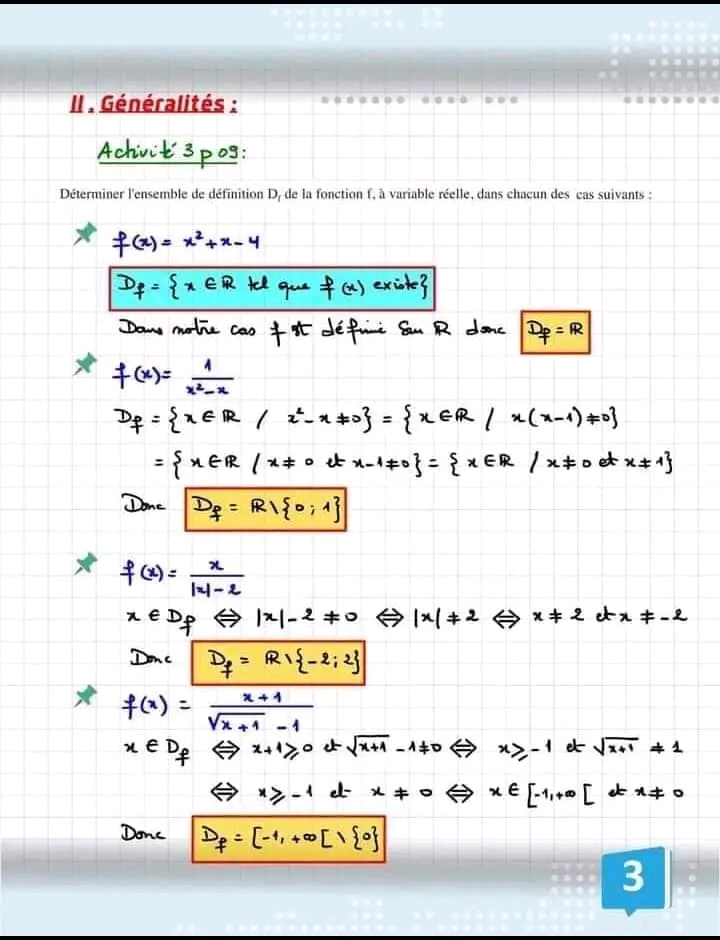 II. Généralités :
Activité 3 p 09 :
Déterminer l'ensemble de définition Df de la fonction f, à variable réelle, dans chacun des cas suivants :
f(x) = x² + x - 4
Df = {x ∈ ℝ tel que f(x) existe}
Dans notre cas f est définie sur ℝ donc Df = ℝ
f(x) = 1/(x² - x)
Df = {x ∈ ℝ / x² - x ≠ 0} = {x ∈ ℝ / x(x-1) ≠ 0}
= {x ∈ ℝ / x ≠ 0 et x-1 ≠ 0} = {x ∈ ℝ / x ≠ 0 et x ≠ 1}
Donc Df = ℝ \ {0 ; 1}
f(x) = x/(|x| - 2)
x ∈ Df ⇔ |x| - 2 ≠ 0 ⇔ |x| ≠ 2 ⇔ x ≠ 2 et x ≠ -2
Donc Df = ℝ \ {-2 ; 2}
f(x) = (x + 1)/(√(x + 1) - 1)
x ∈ Df ⇔ x+1 ⩾ 0 et √(x+1) - 1 ≠ 0 ⇔ x ⩾ -1 et √(x+1) ≠ 1
⇔ x ⩾ -1 et x ≠ 0 ⇔ x ∈ [-1, +∞[ et x ≠ 0
Donc Df = [-1, +∞[ \ {0}
3